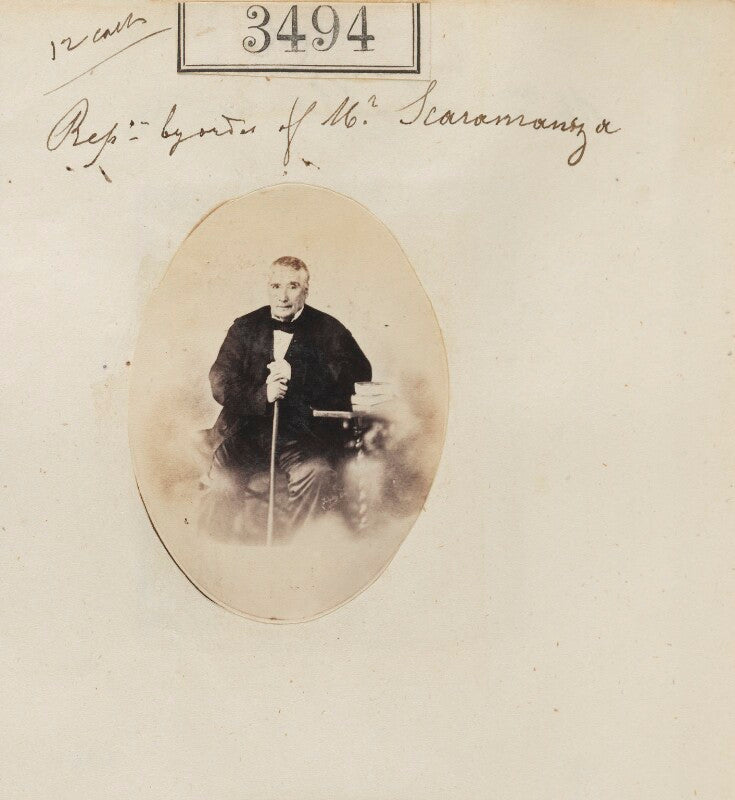 12 cart
3494
Repn by order of Mr. Scaramanga